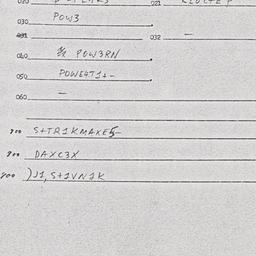 030 POW3
031 032 —
040 % POW3RN
050 POWE4T1+-
060 —
900 S+TR1KMAXE5-
900 DAXC3X
900 )J1,S+1VN1K